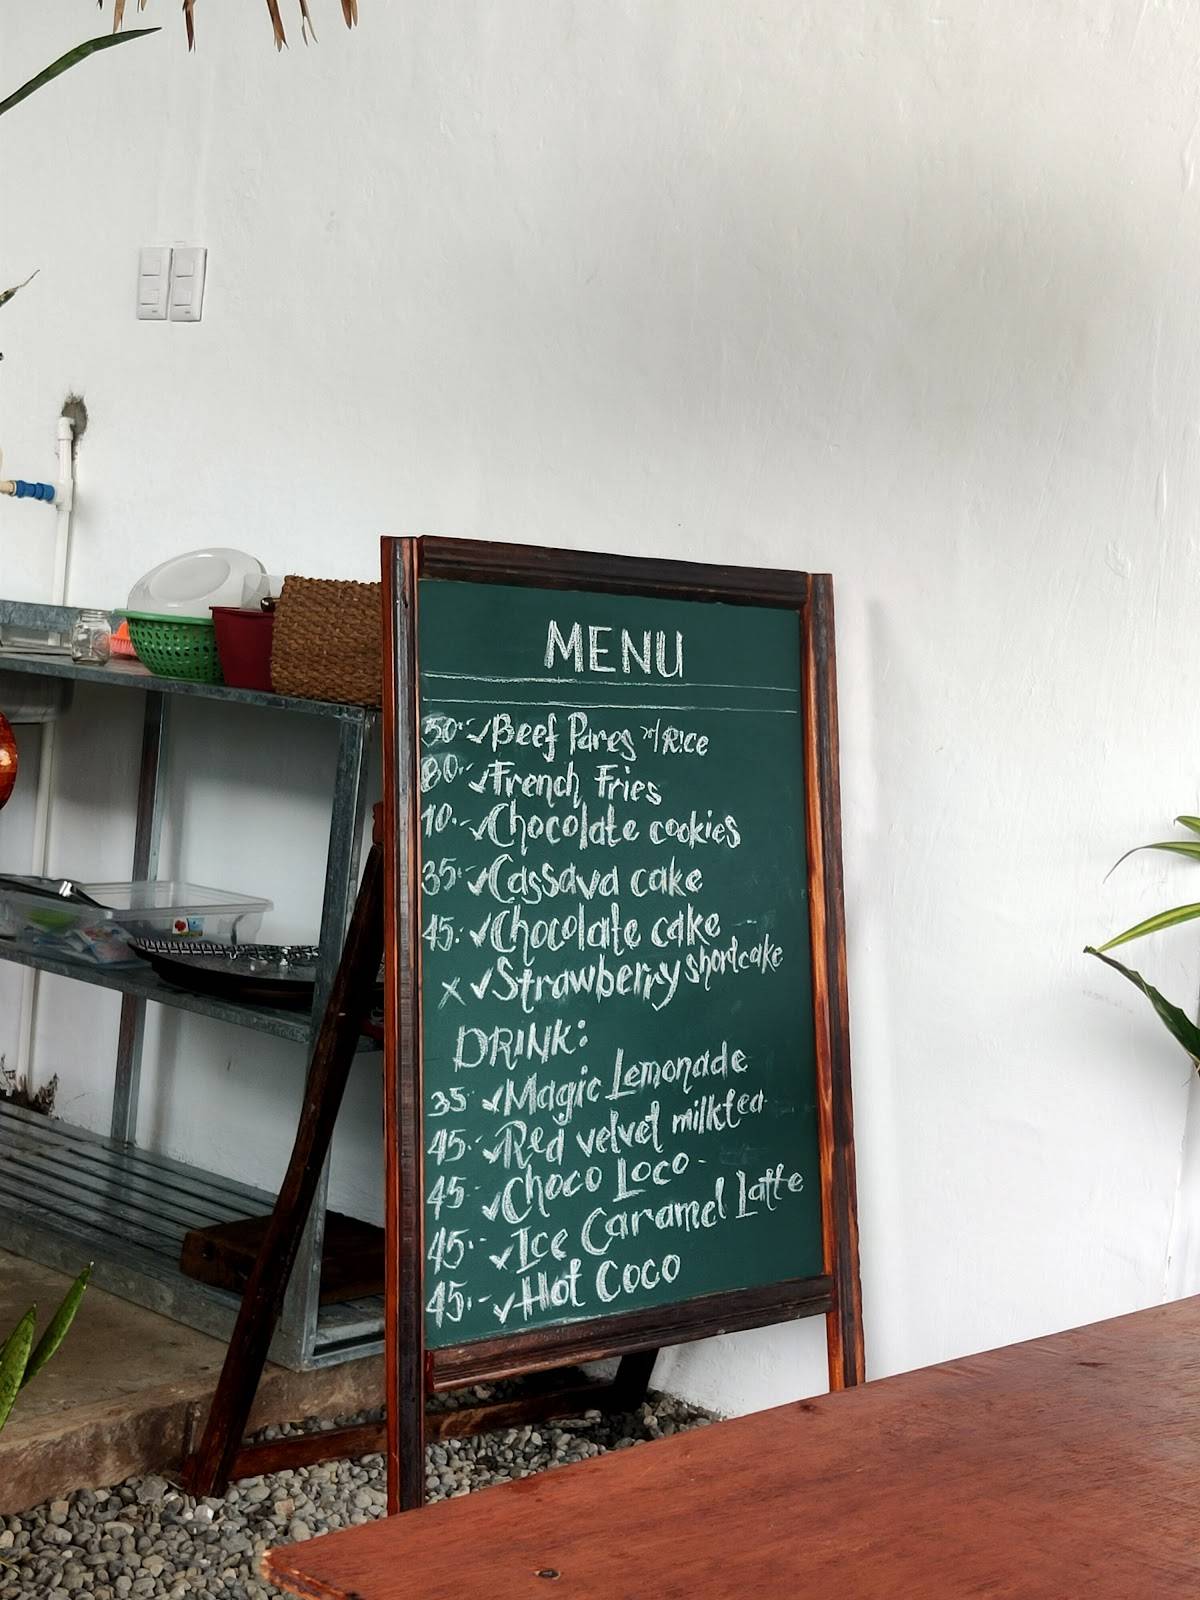 MENU
50.- ✓Beef Pares w/ Rice
80.- ✓French Fries
10.- ✓Chocolate cookies
35.- ✓Cassava cake
45.- ✓Chocolate cake
x ✓Strawberry shortcake
DRINK:
35 ✓Magic Lemonade
45.- ✓Red velvet milktea
45 ✓Choco Loco
45.- ✓Ice Caramel Latte
45.- ✓Hot Coco